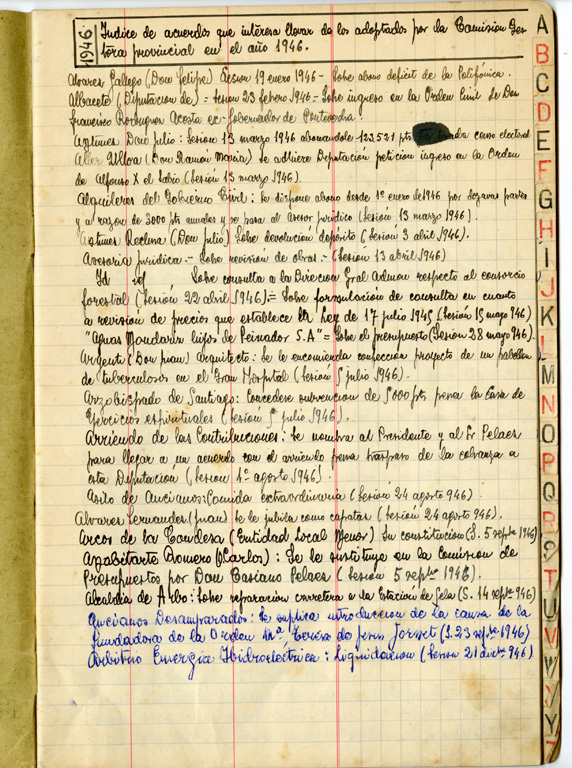 1946
Indice de acuerdos que interesa llevar de los adoptados por la Comision Ges-
tora provincial en el año 1946.
Alvares Gallego (Don Felipe) Sesion 19 enero 1946 - Sobre abono deficit de la Polifónica.
Albacete (Diputacion de) = Sesion 23 febrero 1946 - Sobre ingreso en la Orden Civil de Don
Francisco Rodriguez Acosta ex-Gobernador de Pontevedra.
Agtimes Don Julio: Sesion 13 marzo 1946 abonandole 123,521 pts censo electoral
Aller Ulloa (Don Ramón Maria) Se adhiere Deputacion peticion ingreso en la Orden
de Alfonso X el Sabio (Sesion 13 marzo 1946).
Alquileres del Gobierno Civil: Se dispone abono desde 1º enero de 1946 por dozavas partes
y a razon de 3000 pts anuales y se pasa al Asesor juridico (Sesion 13 marzo 1946).
Agtimes Reclusa (Don Julio) Sobre devolucion depósito (Sesion 3 abril 1946).
Asesoria juridica.- Sobre revisión de obras.- (Sesion 13 abril 1946)
Id id Sobre consulta a la Direcion Gral Admon respecto al consorcio
forestal (Sesion 22 abril 1946).= Sobre formulación de consulta en cuanto
a revisión de precios que establece la Ley de 17 julio 1945 (Sesion 15 mayo 946)
"Aguas Mondariz hijos de Peinador S.A" = Sobre el presupuesto (Sesion 28 mayo 946).
Argenti (Don Juan) arquitecto: Se le encomienda confección proyecto de un pabellon
de tuberculosos en el Gran Hospital (Sesion 5 julio 1946).
Arzobispado de Santiago: Concederse subvencion de 5000 pts para la Casa de
Ejercicios espirituales (Sesion 5 julio 1946).
Arriendo de las Contribuciones: Se nombra al Presidente y al Sr Pelaes
para llegar a un acuerdo con el arriendo para traspaso de la cobranza a
esta Diputación (Sesion 1º agosto 1946).
Asilo de Ancianos: Comida extraordinaria (Sesion 24 agosto 946).
Alvares Fernandes (Juan) Se le jubila como capatas (Sesion 24 agosto 946).
Arcos de la Condesa (Entidad Local Menor) Su constitucion (S. 5 septbre 1946)
Azabitarte Romero (Carlos): Se le sustituye en la Comision de
Presupuestos por Don Casiano Pelaes (Sesion 5 septbre 1946).
Alcaldia de Arbo: Sobre reparacion carretera a la Estacion de Sela (S. 14 septbre 946)
Ancianos Desamparados: Se suplica introduccion de la causa de la
fundadora de la Orden Mª Teresa de Jesus Jornet (S. 23 septbre 1946)
Arbitrio Energia Hidroelectrica: Liquidacion (Sesion 21 dicbre 946)
A
B
C
D
E
F
G
H
I
J
K
L
M
N
O
P
Q
R
S
T
U
V
W
X
Y
Z